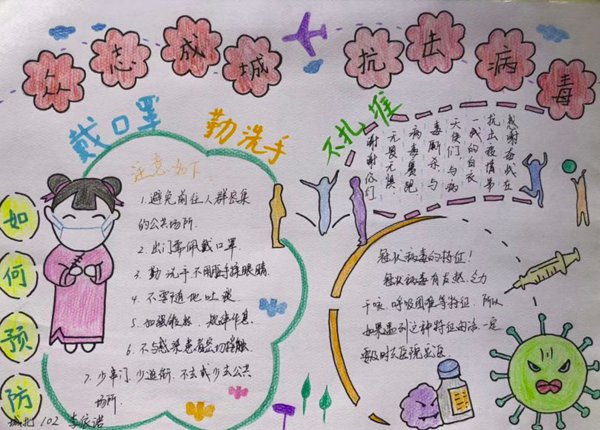 众志成城 抗击病毒
戴口罩 勤洗手 不扎堆
如何预防
注意如下
1.避免前往人群密集
的公共场所.
2.出门需佩戴口罩.
3.勤洗手不用脏手揉眼睛.
4.不要随地吐痰
5.加强锻炼,规律作息.
6.不与感染患者密切接触.
7.少串门,少逛街,不去或少去公共
场所.
感谢奋战在
抗击疫情第
一线的白衣
天使们,与病
毒厮杀,与
病毒赛跑
无畏无惧
谢谢你们
冠状病毒的特征!
冠状病毒有发热、乏力
干咳、呼吸困难等特征,所以
如果遇到这种特征的话,一定
要及时去医院就医
102 李依诺